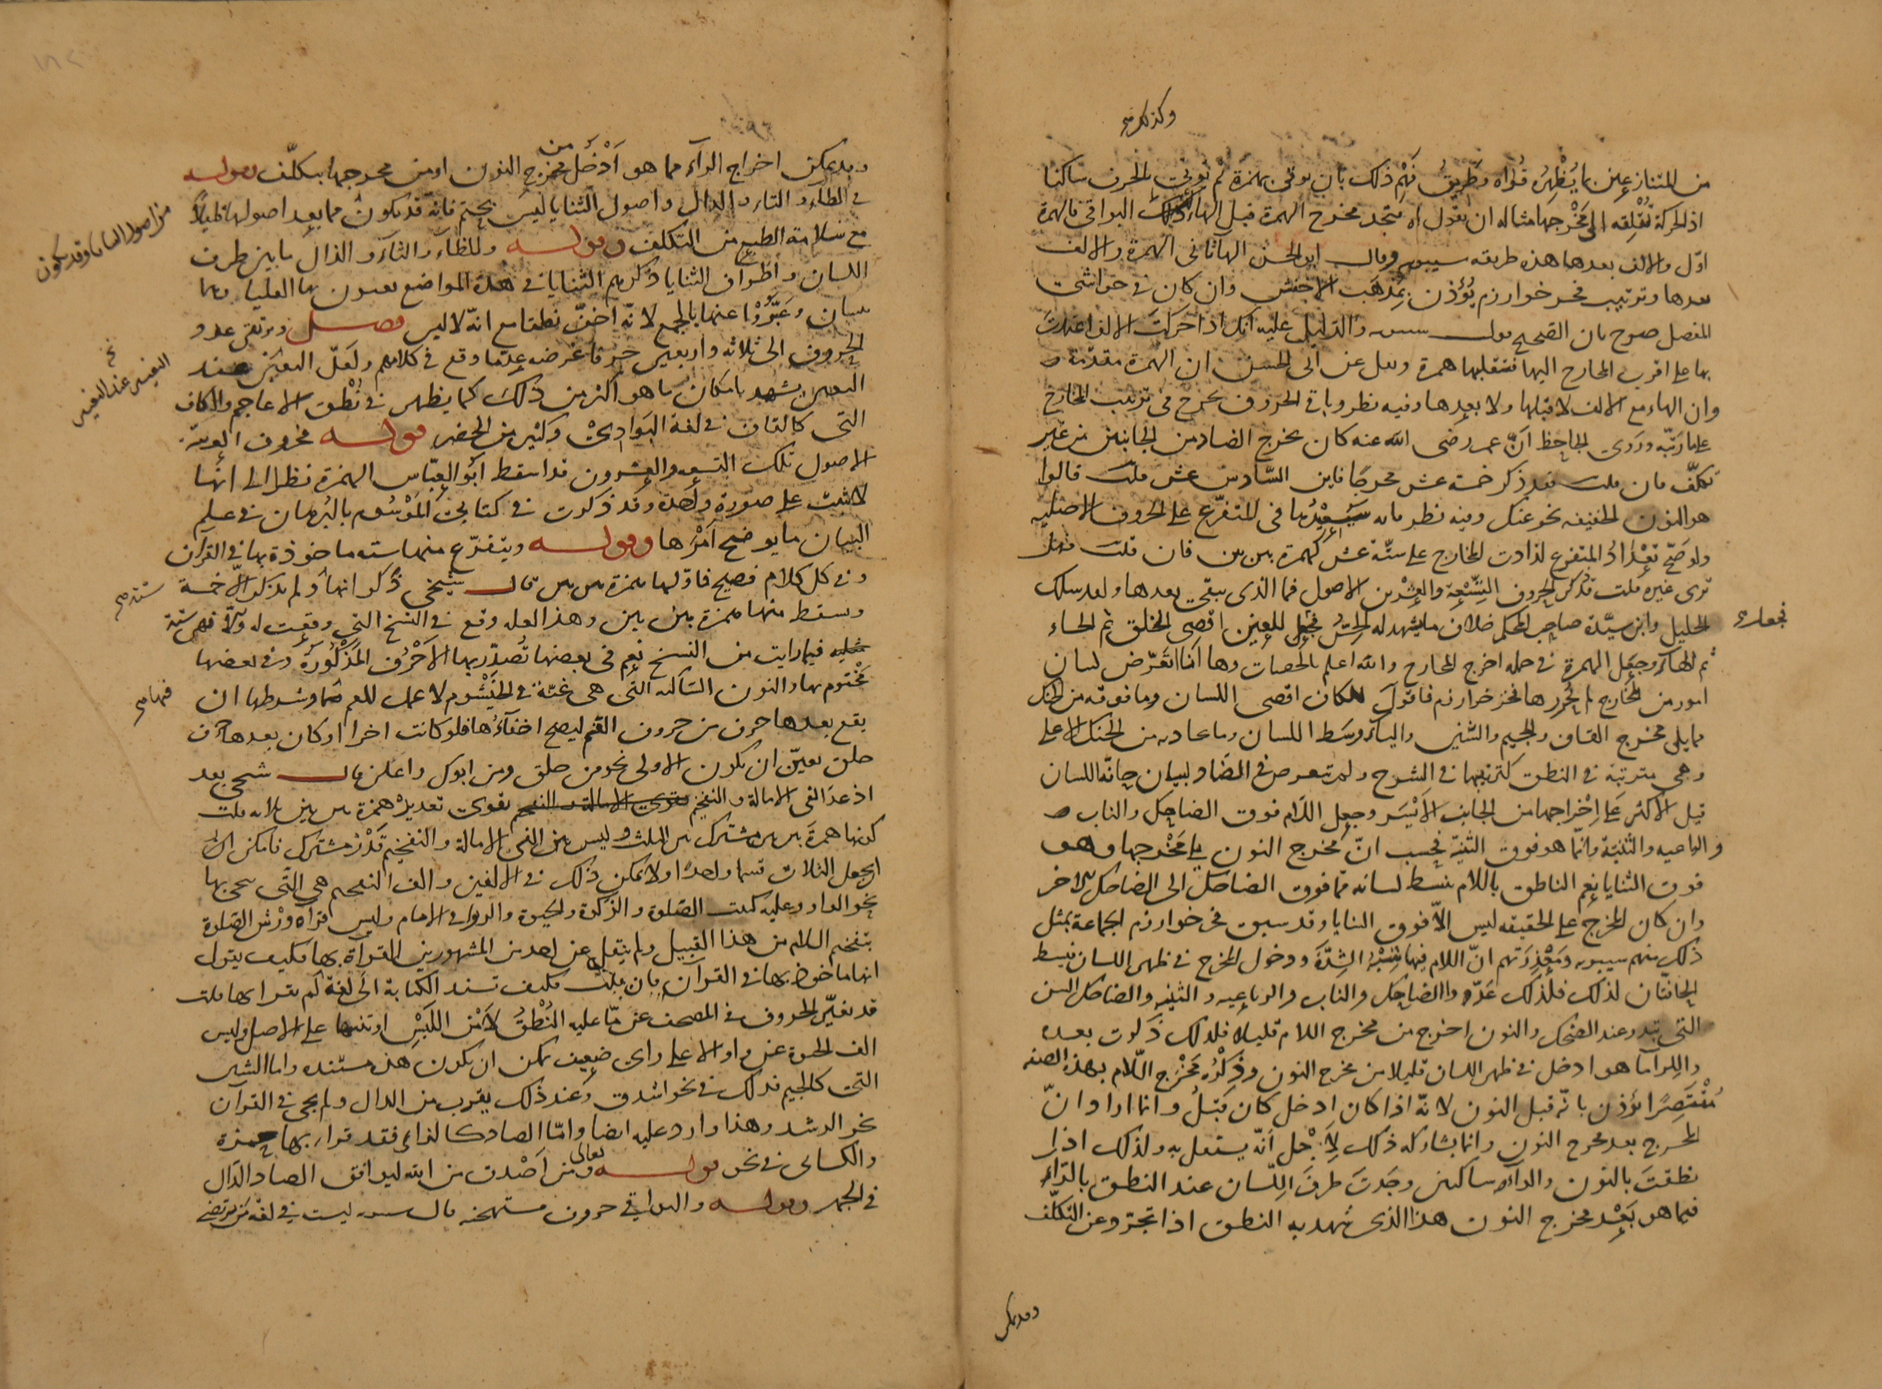 وكذلك صح
من المتنازعين بما يُظْهِرُ قُواه وطَرِيقُ فَهْم ذلك بان يوتى بهمزة ثم يُوتى بالحرف ساكنا
اذ الحركة تُقْلِقه الى مَخْرجها مثاله ان تقول اه فتجد مخرج الهمزة قبل الهاء وكذلك البواقي فالهمزة
اوّل والالف بعدها هذه طريقه سيبويه وقال ابو الحسن الهآ ثانى الهمزة والالف
بعدها وترتيب فخر خوارزم يُؤذن بمذهب الاخفش وان كان في حواشي
المفصل صرح بان الصحيح قول سيبويه والدليل عليه انك اذا حركت الالف اعتمدت
بها على اقرب المخارج اليها فتقلبها همزة ونقل عن ابى الحسن ان الهمزة مقدمة
وان الهاء مع الالف لا قبلها ولا بعدها وفيه نظر وباقي الحروف تخرج في ترتيب المخارج
على ما رتبه وروى الجاحظ انّ عمر رضى الله عنه كان يخرج الضاد من الجانبين من غير
تكلّف فان قلت فقد ذكر خمسة عشر مخرجا فاين السّادس عشر قلت قالوا
هو النون الخفيفة نحو عنك وفيه نظر فانه سَيُعِيْدُها في المتفرّع على الحروف الاصليه
ولو صحّ تَعْداد المتفرع لزادت المخارج على ستّة عشر كهمزة بين بين فان قلت فهل
ترى غيره قلت قد ذكر الحروف التِّسْعة والعِشْرين الاصول فما الذى يبقى بعدها ولقد سلك
الخليل وابن سيّدة صاحب المحكم خلاف ما يشهد له الحِسُّ فجعل للعين اقصى الحلق ثم الحاء
فجعلا صح
ثم الهآء وجعل الهمزة في جمله اخرج المخارج والله اعلم بالحصات وها انا اتعَرّض لبيان
امور من المخارج لم يُحررها فخر خوارزم فاقول للكاف اقصى اللسان وما فوقه من الحنك
مما يلى مخرج القاف وللجيم والشّين واليآء وسَط اللسان وما حاذيه من الحنك الاعلى
وهى مترتبة في النطق كترتيبها في الشرح ولم يتعرض في الضاد لبيان حافّة اللسان
قيل الاكثر على إخْراجها من الجانب الاَيْسَر وجعل اللام فوق الضاحك والناب
والرباعيه والثنيّة وانّما هو فوق الثنيّة فحسب لانّ مخرج النون يلى مَخْرجها وهو
فوق الثنايا نعم الناطق باللام يبسط لسانه مما فوق الضاحك الى الضاحك الاخر
وان كان المخرج على الحقيقه ليس الاّ فوق الثنايا وقد سبق فخر خوارزم الجماعة بمثل
ذلك منهم سيبويه ومَعْذِرَتهم انّ اللام فيها شِبْهُ الشِدَّة ودخول المخرج في ظهر اللسان فتبسط
الجانبان لذلك فلذلك عَدّدوا الضاحك والناب والرباعيه والثنيّه والضاحك السن
التى تبدو عند الضحك والنون اخرج من مخرج اللام قليلا فلذلك ذكرت بعده
والرآء ما هو ادخل في ظهر اللسان قليلا من مخرج النون وذِكْرُه مَخْرَج اللام بهذه الصفة
مُقْتَصِرًا يؤذن بانّه قبل النون لانّه اذا كان ادخل كان قَبْلُ وانما اراد انّ
المخرج بعد مخرج النون وانما يشاركه ذلك لاَِجْل أنّه يستعلى به ولذلك اذا
نطقتَ بالنون والرآء ساكنين وجَدتَ طرفَ اللّسان عند النطق بالرّاء
فيما هو بَعْدَ مخرج النون هذا الذى شهد به النطق اذا تجرّد عن التكلّف
وقد يمكن
وقد يمكن اخراج الرآء مما هو اَدْخَل من مخرج النون او من مخرجها بتكلّف وقوله
في الطآء والتاء والدال واصول الثنايا ليس بحتم فانّه قد يكون مما بعد اصولها قليلاً
من اصول الثنايا وقد يكون
مع سلامة الطبع من التكلف وقوله وللظآء والثآء والذال ما بين طرف
اللسان واطراف الثنايا ذكرهم الثنايا في هذه المواضع يعنون بها العليا وهما
ثنيتان وعَبَّرُوا عنها بالجمع لانّه اخفّ نطقا مع انّه لا لبس فصل ويرتقى عدد
الحروف الى ثلاثة واربعين حرفا غرضه عدّ ما وقع في كلامهم ولعلّ التعيين عند
النفيس عند النفيس
التعيين يشهد بامكان ما هو اكثر من ذلك كما يظهر في نُطْق الاعاجم والكاف
التى كالقاف في لغة البَوادِى وكثير من الحضر قوله فحروف العربيّة
الاصول تلك التسعه والعشرون قد اسقط ابو العبّاس الهمزة نظرا الى انّها
لا تثبت على صورة واحدة وقد ذكرت في كتابى المَوْسُوم بالبُرهان في علم
البيان ما يوضح اَمْرها وقوله ويتفرّع منها سته ماخوذة بها في القرآن
وفى كل كلام فصيح فاوّلها همزة بين بين قال شيخى ذكر انها ولم يذكر الاّ خمسة
ستة صح
وسقط منها همزة بين بين وهذا لعله وقع في النسخ التى وقعت له والاّ فهى ستة
فيما رايت من النسخ نعم في بعضها تُصدّر بها الاَحْرُف المَذْكُورَة وفي بعضها
مَخْتوم بها والنون الساكنه التى هى غنّة في الخَيْشُوم لا عمل للفم وشرطها ان
فيها صح
يقع بعدها حرف من حروف الفم ليصح اخفآءُها فلو كانت اخرا او كان بعدها حرف
حلق تعيّن ان تكون الاولى نحو من خلق ومن ابوك واعلن قال شيخى بعد
اذ عدّ الفى الامالة والتفخيم يقوى تعديدُ همزة بين بين ثلاثه قلت
كونها همزة بين بين مشترك بين الثلث وليس بين الفى الامالة والتفخيم قَدْرٌ مشترك فامكن ان
يجعل الثلاث قسما واحدا ولا يمكن ذلك في الالفين والف التفخيم هى التى يُنحى بها
نحو الواو وعليه كتبت الصّلوة والزكوة والحيوة والربوا في الامام وليس اقرآء ورش الصلوة
بتفخيم اللام من هذا القبيل ولم ينقل عن احد من المشهورين القراة بها فكيف يقول
انها ماخوذ بها في القرآن فان قلت فكيف تسند الكتابة الى لغة لم يقرا بها قلت
قد تغيّر الحروف في المصحف عن ما عليه النُّطْقُ لاَمْن اللَبْس او تنبيها على الاصل وليس
الف الحيوة عن واو الا على راى ضعيف يمكن ان يكون هذه مستنده واما الشين
التى كالجيم فذلك في نحو اشدق وعند ذلك يقرب من الدال ولم يجئ في القرآن
نحو الرشد وهذا وارد عليه ايضا وامّا الصاد كالزاى فقد قراء بها حمزة
والكسائى في نحو قوله تعالى ومن اَصْدق من الله ليوافق الصاد الدال
في الجهر وقوله والبواقي حروف مستهجنه قال سيبويه ليست في لغة من ترتضى